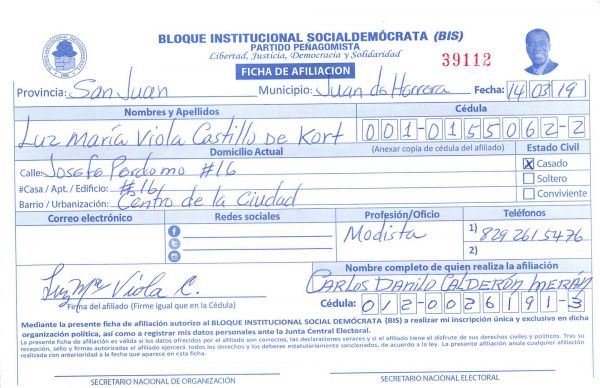 BLOQUE INSTITUCIONAL SOCIALDEMÓCRATA (BIS)
PARTIDO PEÑAGOMISTA
Libertad, Justicia, Democracia y Solidaridad
39112
FICHA DE AFILIACION
Provincia: San Juan Municipio: Juan de Herrera Fecha: 14/03/19
Nombres y Apellidos Cédula
Luz María Viola Castillo De Kort 001-0155062-2
Domicilio Actual (Anexar copia de cédula del afiliado) Estado Civil
Calle: Josefa Perdomo #16 X Casado
#Casa / Apt. / Edificio: #16 Soltero
Barrio / Urbanización: Centro de la Ciudad Conviviente
Correo electrónico Redes sociales Profesión/Oficio Teléfonos
Modista 1) 829 261 5476
2)
Nombre completo de quien realiza la afiliación
Luz Mª Viola C. Carlos Danilo Calderón Merán
Firma del afiliado (Firme igual que en la Cédula) Cédula: 012-0026191-3
Mediante la presente ficha de afiliación autorizo al BLOQUE INSTITUCIONAL SOCIAL DEMÓCRATA (BIS) a realizar mi inscripción única y exclusiva en dicha
organización política, así como a registrar mis datos personales ante la Junta Central Electoral.
La presente ficha de afiliación es válida si los datos ofrecidos por el afiliado son correctos, las declaraciones veraces y si el afiliado tiene el disfrute de sus derechos civiles y políticos. Tras su
recepción, sello y firmas autorizadas el afiliado ejercerá todos los derechos y los deberes estatutariamente sancionados, de acuerdo a la ley. La presente afiliación anula cualquier afiliación
realizada con anterioridad a la fecha que aparece en esta ficha.
SECRETARIO NACIONAL DE ORGANIZACIÓN SECRETARIO NACIONAL ELECTORAL